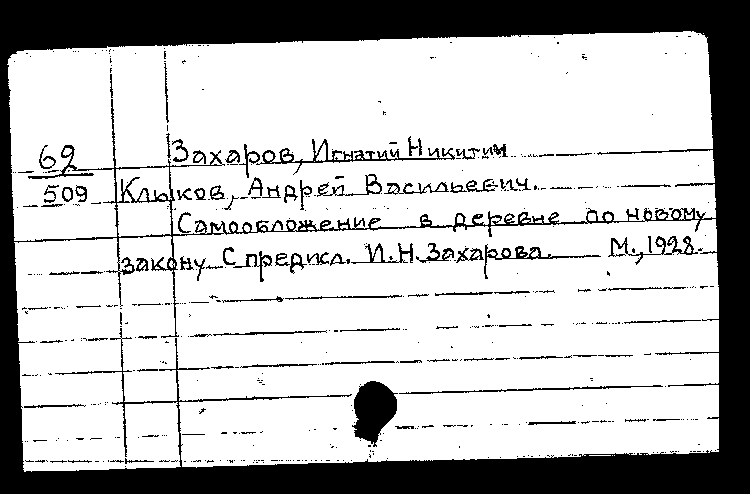 62 Захаров, Игнатий Никитич
509 Клыков, Андрей Васильевич.
Самообложение в деревне по новому
закону С предисл. И.Н. Захарова. М., 1928.